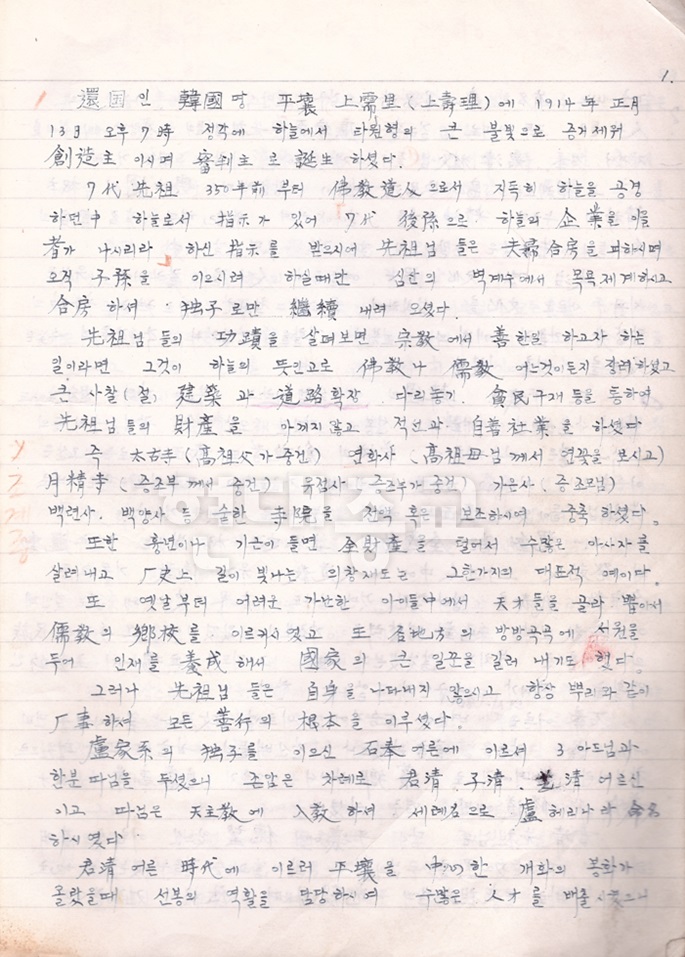 1.
還国인 韓國땅 平壤 上需里(上壽理)에 1914年 正月
13日 오후7時 정각에 하늘에서 타원형의 큰 불빛으로 증거제위
創造主이시며 審判主로 誕生하셨다.
7代先祖 350年前부터 佛敎道人으로서 지득히 하늘을 공경
하던中 하늘로서 指示가 있어 7代 後孫으로 하늘의 企業을 이을
者가 나시리라 하신 指示를 받으시어 先祖님들은 夫婦合房을 피하시며
오직 子孫을 이으시려 하실때만 심한의 벽계수에서 목욕제계하시고
合房하셔 独子로만 繼續 내려 오셨다.
先祖님들의 功蹟을 살펴보면 宗敎에서 善한일 하고자 하는
일이라면 그것이 하늘의 뜻인고로 佛敎나 儒敎 어느것이든지 갈려하셨고
큰 사찰(절) 建築과 道路확장 다리놓기. 貧民구재 등을 통하면
先祖님들의 財產을 아끼지않고 적선과 自善社業을 하셨다
즉 太古寺(高祖父가 중건) 연화사(高祖母님께서 연꽃을 보시고)
月精寺(증조부께서 중건) 유점사(증조부가 중건) 가은사.(증조모님)
백련사. 백양사 등 술한 寺院을 전액 혹은 보조하시여 중축하셨다.
또한 흉년이나 기근이 들면 全財產을 털어서 수많은 아사자를
살려내고 厂史上 길이 빛나는 의창제도는 그한가지의 대표적 예이다.
또 옛날부터 어려운 가난한 아이들中에서 天才들을 골라 뽑아서
儒敎의 鄕校를 이르켜시였고 또 各地方의 방방곡곡에 서원을
두어 인재를 養成해서 國家의 큰 일꾼을 길러 내기도 했다.
그러나 先祖님들은 自身을 나타내지 않으시고 항상 뿌리와 같이
厂事하셔 모든 善行의 根本을 이루셨다.
盧家系의 独子를 이으신 石奉어른에 이르셔 3아드님과
한분 따님을 두셨으니 존함은 차례로 君清. 子清. 清어르신
이고 따님은 天主敎에 入敎하셔 세례김으로 盧헤리나라 命名
하시였다
君清어른 時代에 이르러 平壤을 中心한 개화의 봉화가
올랐을때 선봉의 역활을 담당하시여 수많은 人才를 배출시켰으니